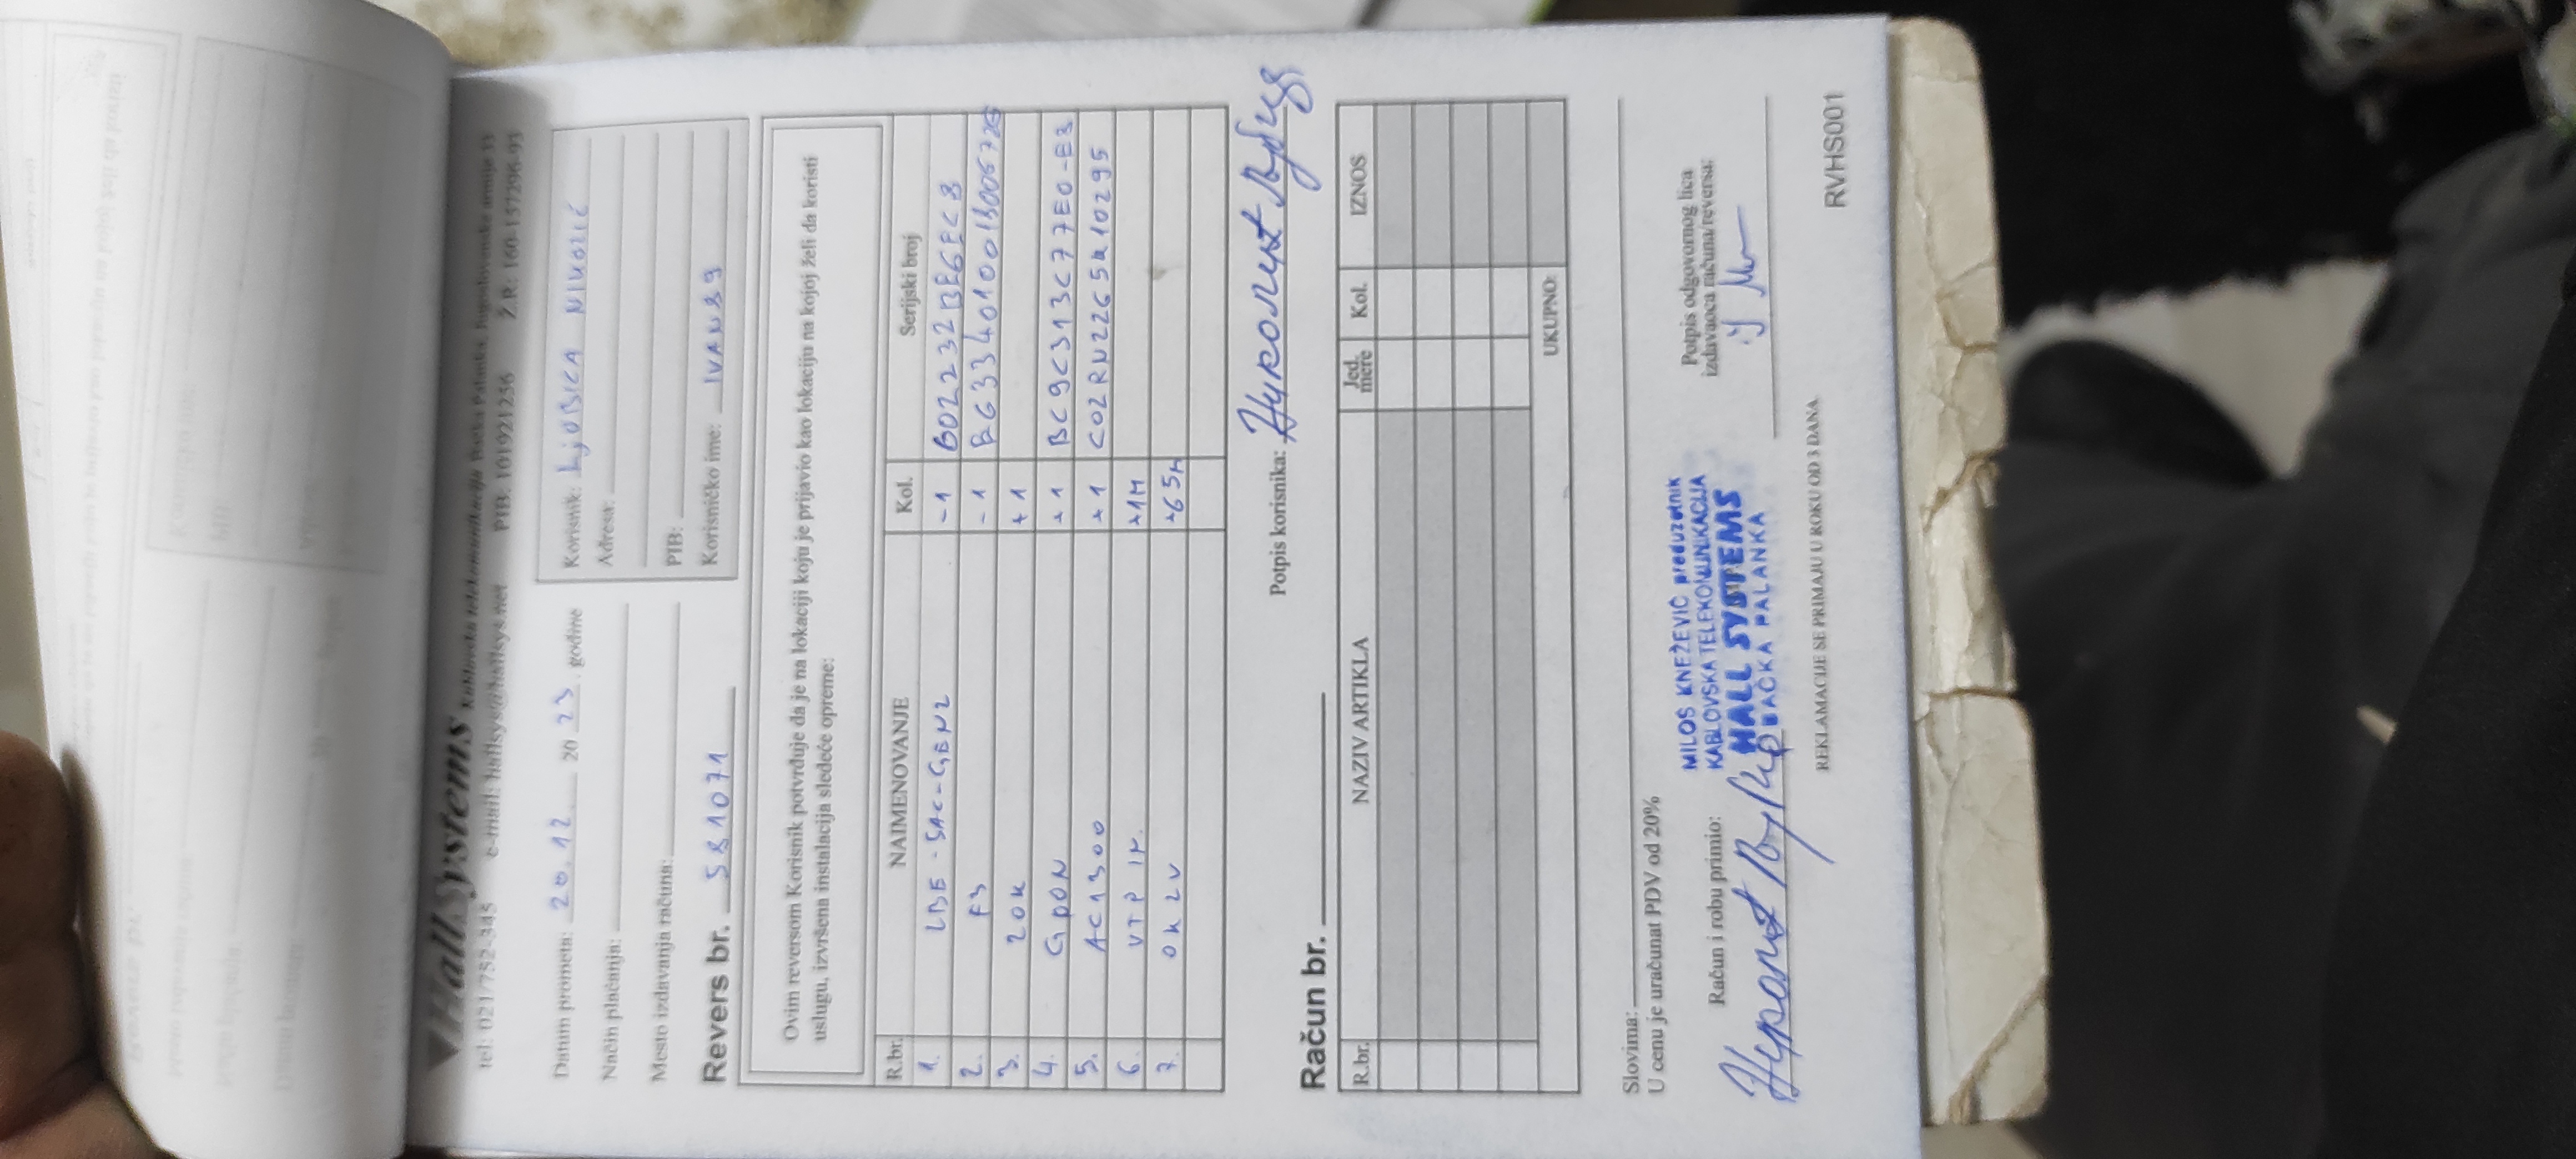 HallSystems Kablovska telekomunikacija Bačka Palanka, Jugoslovenske armije 13
tel: 021/752-345 e-mail: hallsys@hallsys.net PIB: 101921256 Ž.R.: 160-157296-93
Datum prometa: 20.12. 20 23. godine
Korisnik: LjUBICA NIKOLIĆ
Način plaćanja:
Adresa:
Mesto izdavanja računa:
PIB:
Revers br. 581071
Korisničko ime: IVAN89
Ovim reversom Korisnik potvrđuje da je na lokaciji koju je prijavio kao lokaciju na kojoj želi da koristi
uslugu, izvršena instalacija sledeće opreme:
R.br. NAIMENOVANJE Kol. Serijski broj
1. LBE-5AC-GEN2 -1 B02232BE6EC8
2. F3 -1
3. 20K +1
4. GPON +1 BC9C313C77E0-E3
5. AC1300 +1 C02RN22G5K10295
6. UTP +1M
7. OK 2V +65M
Potpis korisnika:
Račun br.
R.br. NAZIV ARTIKLA Jed. mere Kol. IZNOS
UKUPNO:
Slovima:
U cenu je uračunat PDV od 20%
Račun i robu primio:
MILOŠ KNEŽEVIĆ preduzetnik
KABLOVSKA TELEKOMUNIKACIJA
HALL SYSTEMS
BAČKA PALANKA
Potpis odgovornog lica
izdavaoca računa/reversa:
REKLAMACIJE SE PRIMAJU U ROKU OD 3 DANA
RVHS001